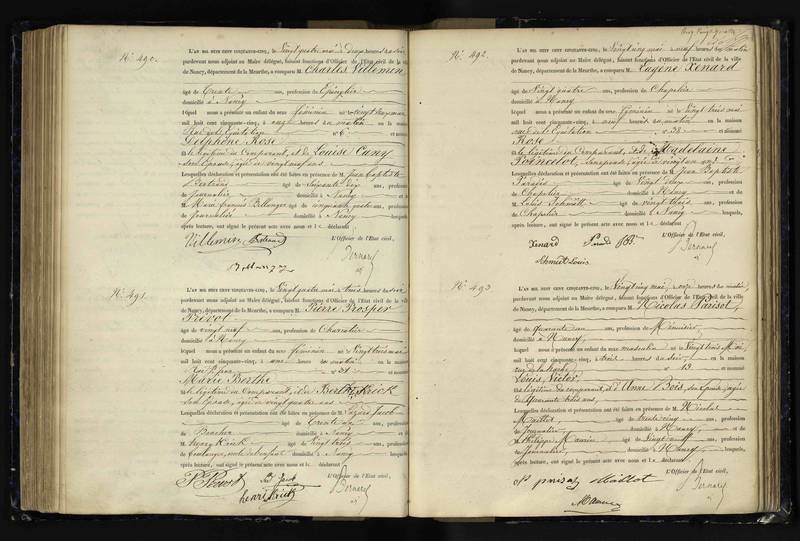 N.° 490.
L'AN MIL HUIT CENT CINQUANTE-CINQ, le Vingt quatre mai à deux heures du soir
pardevant nous adjoint au Maire délégué, faisant fonctions d'Officier de l'Etat civil de la ville
de Nancy, département de la Meurthe, a comparu M. Charles Villemin
âgé de trente ans, profession de Epinglier
domicilié à Nancy
lequel nous a présenté un enfant du sexe féminin né le vingt trois mai
mil huit cent cinquante-cinq, à onze heures du matin en la maison
Rue de l'Equitation n° 6 et nommé
Delphine Rose
fille légitime du Comparant, et de Louise Cuny
son épouse, âgée de vingt neuf ans
Lesquelles déclaration et présentation ont été faites en présence de M. Jean baptiste
Bertrand âgé de soixante dix ans, profession
de journalier domicilié à Nancy et de
M. Marie françois Bellanger âgé de cinquante quatre ans, profession
de journalier domicilié à Nancy lesquels,
après lecture, ont signé le présent acte avec nous et le déclarant
Villemin Bertrand
L'Officier de l'Etat civil,
Bernard
N.° 491.
L'AN MIL HUIT CENT CINQUANTE-CINQ, le Vingt quatre mai à trois heures du soir
pardevant nous adjoint au Maire délégué, faisant fonctions d'Officier de l'Etat civil de la ville
de Nancy, département de la Meurthe, a comparu M. Pierre Prosper
Prévot
âgé de vingt neuf ans, profession de Charcutier
domicilié à Nancy
lequel nous a présenté un enfant du sexe féminin né le Vingt trois mai
mil huit cent cinquante-cinq, à une heures du matin en la maison
Rue St Jean n° 31 et nommé
Marie Berthe
fille légitime du Comparant, et de Berthe Krick
son épouse, âgée de vingt quatre ans
Lesquelles déclaration et présentation ont été faites en présence de M. Jacob
âgé de Trente ans, profession
de Boucher domicilié à Nancy et de
M. henry Krick âgé de Vingt trois ans, profession
de boulanger, oncle de l'enfant domicilié à Nancy lesquels,
après lecture, ont signé le présent acte avec nous et le déclarant
P Prévot Jacob
henri Krick
L'Officier de l'Etat civil,
Bernard
N.° 492.
L'AN MIL HUIT CENT CINQUANTE-CINQ, le Vingt cinq mai à neuf heures du matin
pardevant nous adjoint au Maire délégué, faisant fonctions d'Officier de l'Etat civil de la ville
de Nancy, département de la Meurthe, a comparu M. Eugène Xenard
âgé de Vingt quatre ans, profession de Chapelier
domicilié à Nancy
lequel nous a présenté un enfant du sexe féminin né le Vingt trois mai
mil huit cent cinquante-cinq, à neuf heures du matin en la maison
rue de l'Equitation n° 38 et nommé
Rose
fille légitime du Comparant, et de Madelaine
Pornestot, son épouse, âgée de vingt un ans
Lesquelles déclaration et présentation ont été faites en présence de M. Jean Baptiste
Paradis âgé de Vingt deux ans, profession
de Chapelier domicilié à Nancy et de
M. Louis Schmitt âgé de vingt trois ans, profession
de Chapelier domicilié à Nancy lesquels,
après lecture, ont signé le présent acte avec nous et le déclarant
Xenard
Schmitt Louis
L'Officier de l'Etat civil,
Bernard
N.° 493.
L'AN MIL HUIT CENT CINQUANTE-CINQ, le Vingt cinq mai à onze heures du matin,
pardevant nous adjoint au Maire délégué, faisant fonctions d'Officier de l'Etat civil de la ville
de Nancy, département de la Meurthe, a comparu M. Nicolas Parisot,
âgé de quarante un ans, profession de Menuisier
domicilié à Nancy,
lequel nous a présenté un enfant du sexe masculin né le Vingt trois Mai,
mil huit cent cinquante-cinq, à trois heures du soir, en la maison
rue de la hache n° 13 et nommé
Louis, Victor,
fils légitime du comparant, et d'Anne Bois, son épouse, âgée
de quarante trois ans,
Lesquelles déclaration et présentation ont été faites en présence de M. Nicolas
Maillot âgé de trente cinq ans, profession
de Journalier domicilié à Nancy, et de
M. Philippe Maurice âgé de Vingt neuf ans, profession
de Journalier, domicilié à Nancy, lesquels,
après lecture, ont signé le présent acte avec nous et le déclarant
N parisot Maillot
L'Officier de l'Etat civil,
Bernard